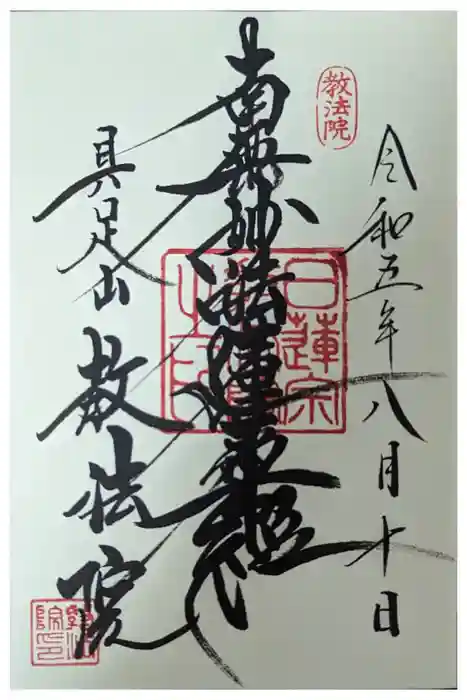 教法院
令和五年八月十日
南無妙法蓮華経
日蓮宗
具足山
教法院